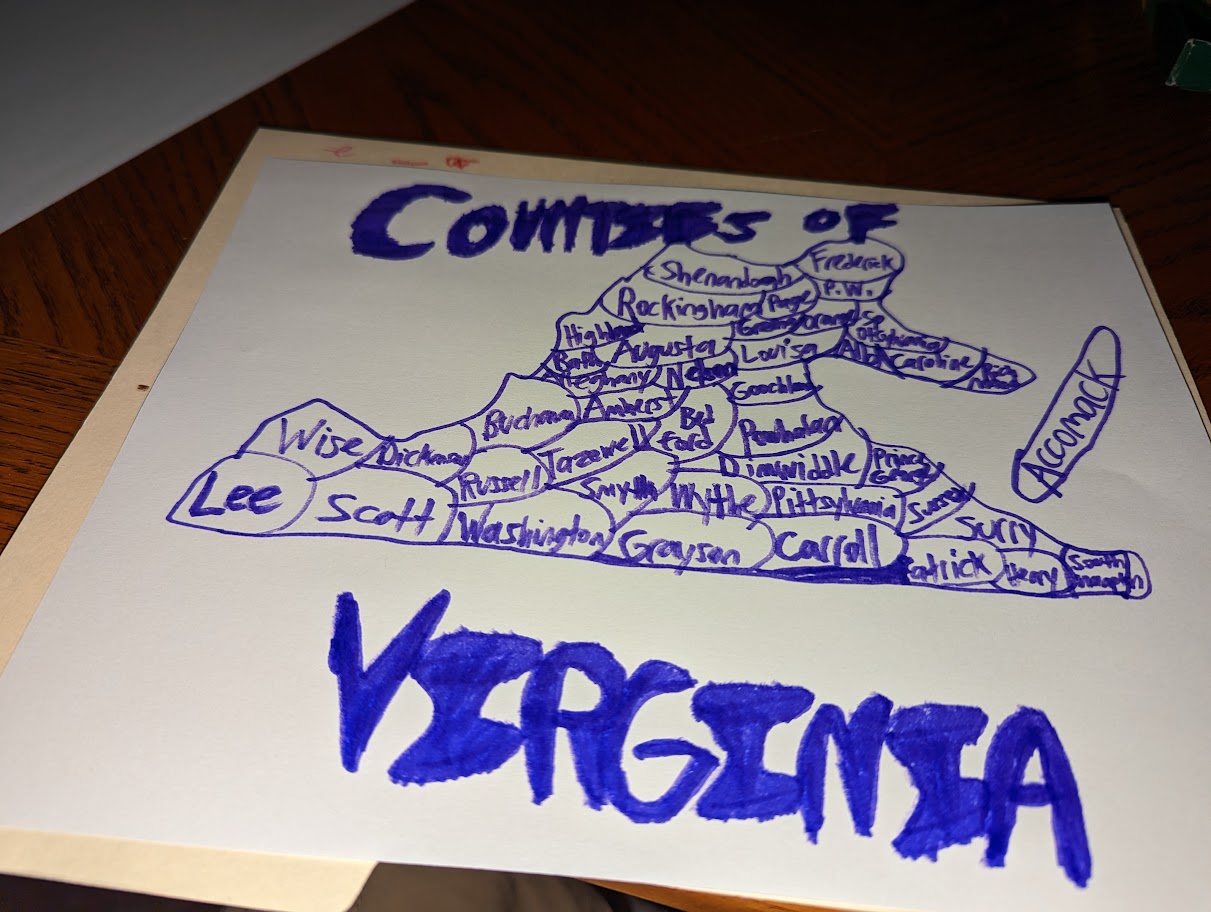 COUNTIES OF
Shenandoagh Frederick
Rockingham Page P.W.
Highland Augusta Greene Orange
Bath Louisa Caroline
Alleghany Nelson Goochland
Buchanan Amherst Bedford Powhatan Accomack
Wise Dickinson Russell Tazewell Dinwiddie Prince George
Lee Scott Smyth Wythe Pittsylvania Surry
Washington Grayson Carroll Patrick Henry Southhampton
VIRGINIA